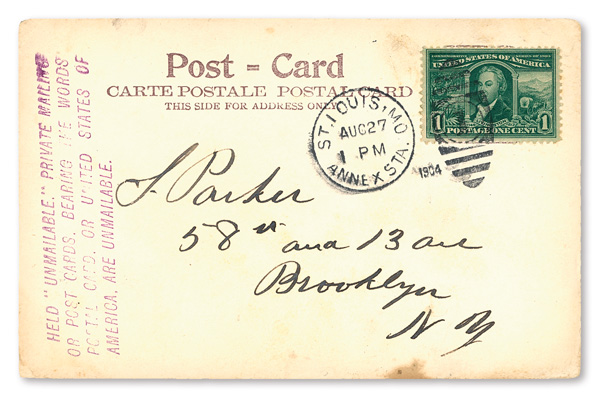 Post = Card
CARTE POSTALE POSTAL CARD
THIS SIDE FOR ADDRESS ONLY
HELD "UNMAILABLE." PRIVATE MAILING
OR POST CARDS, BEARING THE WORDS
POSTAL CARD, OR UNITED STATES OF
AMERICA, ARE UNMAILABLE.
ST. LOUIS, MO.
AUG 27
1 PM
ANNEX STA.
1904
UNITED STATES OF AMERICA
1 POSTAGE ONE CENT 1
S. Parker
58 st and 13 ave
Brooklyn
N Y